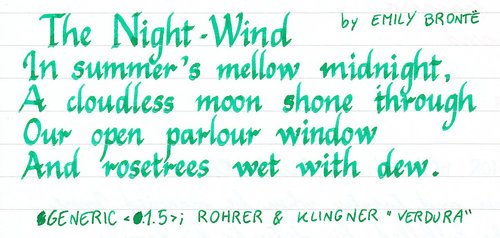 The Night-Wind by EMILY BRONTË
In summer's mellow midnight,
A cloudless moon shone through
Our open parlour window
And rosetrees wet with dew.
GENERIC <1.5>; ROHRER & KLINGNER "VERDURA"